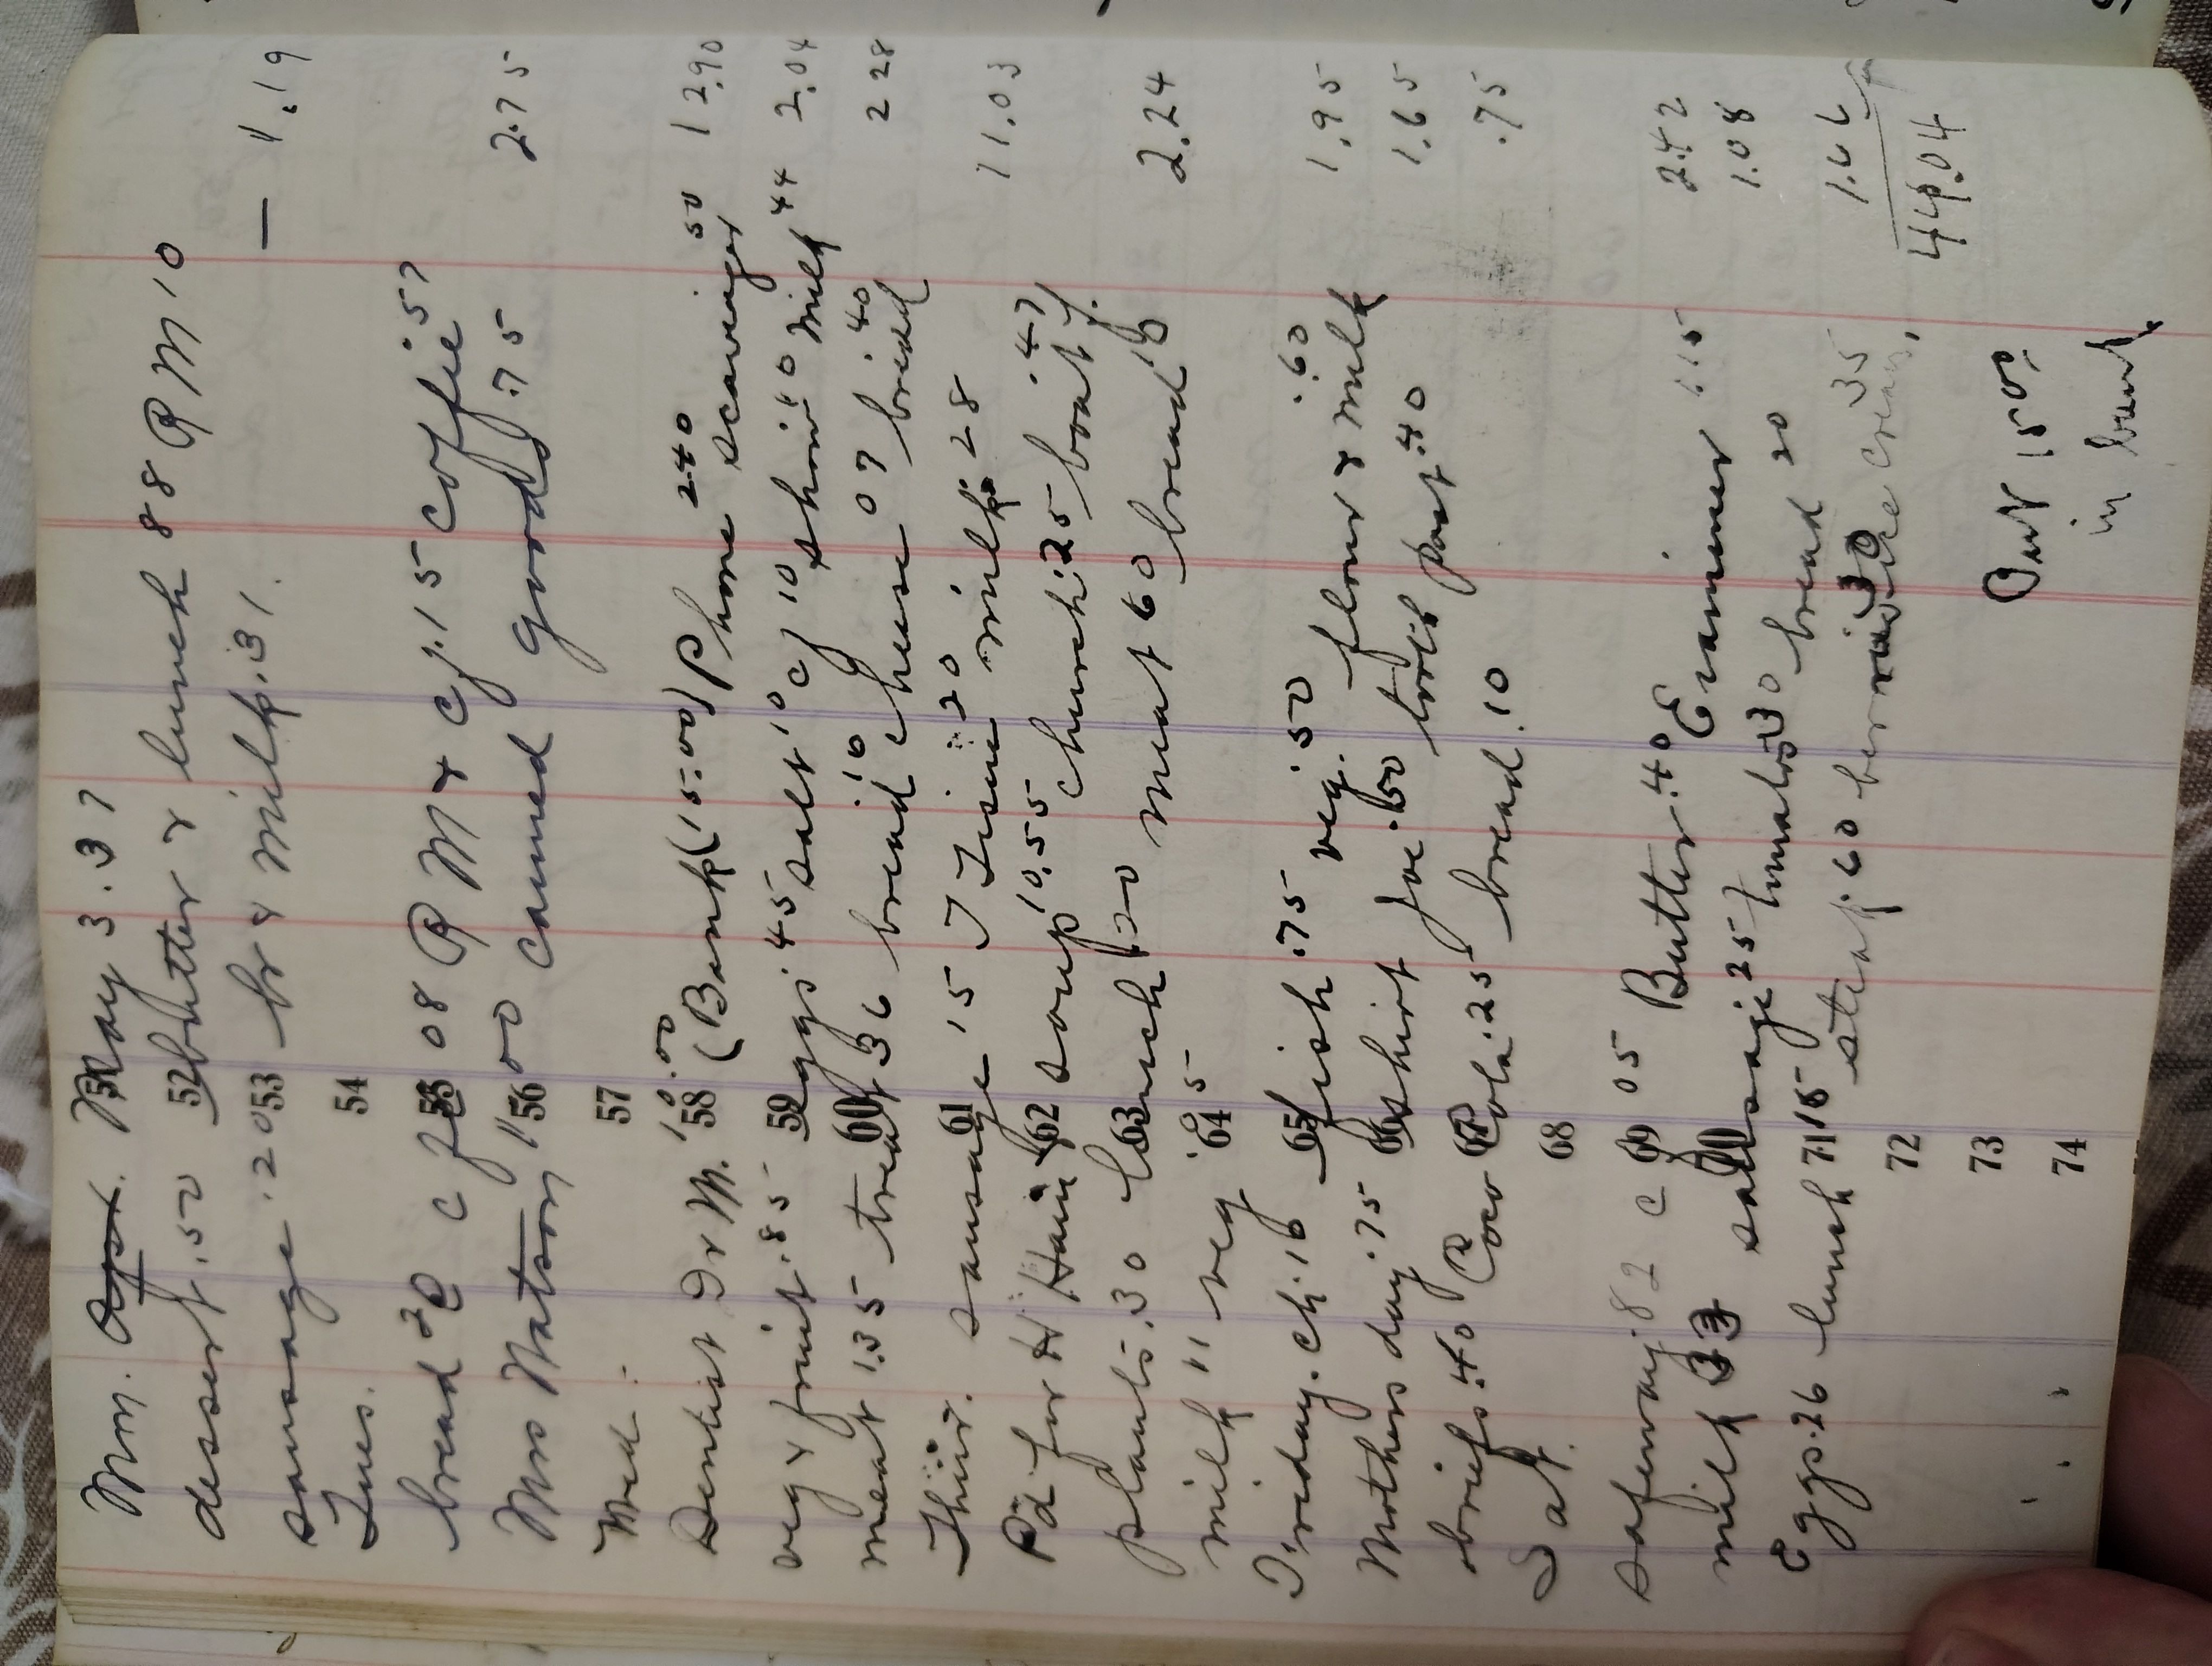 Mon. Apr. May 3. 37 51
dessert .50 52 butter & lunch 88 PM 10
sausage .20 53 br & milk .31 — 1.19
Tues. 54
bread 20 c 55 08 PM & cg .15 coffie 57
Mrs Watson 1 00 56 canned goods .75 2.75
Wed. 57
Dentist Dr M. 10.00 58 (Bank (15.00) Phone 2 40 scavinger 50 12.90
veg & fruit .85 59 eggs 45 salt 10 cg 10 shine 10 milk 44 2.04
meat 1.35 treat 60 36 bread 10 cheese 07 bread 40 2 28
Thur. sausage 61 15 20 milk 28
Pd for H Hair 62 soup 10.55 church 25 boat .47 11.03
plants .30 lunch 63 20 meat 60 bread
milk 11 veg 64 2.24
Friday. ch .16 65 fish .75 veg. .50 flour & milk .60 1.95
Mothers day .75 66 shirt Joe .50 tooth past .40 1.65
briefs .40 Coco Cola 67 .25 bread .10 .75
Sat. 68
safeway .82 c 69 05 Butter .40 Examiner .15 2.42
milk 33 70 sausage 25 tomatos 30 bread 20 1.08
Eggs .26 lunch 71 15 steak .60 berries 30 ice cream 35 1.66
72 44.04
73 Put 15 00
74 in bank